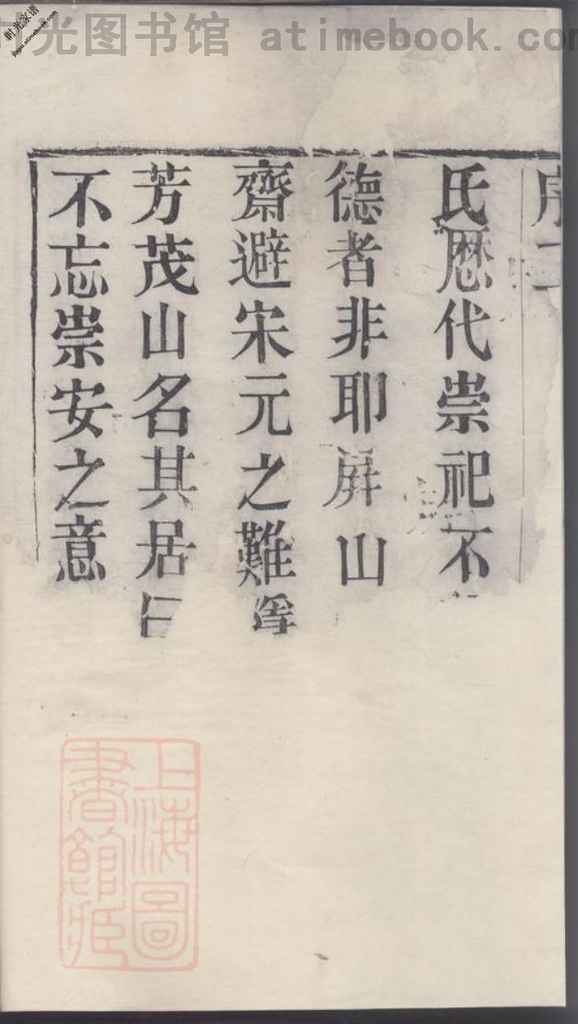 时光图书馆 atimebook.com
序
氏歴代崇祀不
德者非耶屏山
齋避宋元之難
芳茂山名其居曰
不忘崇安之意
上海圖書館藏